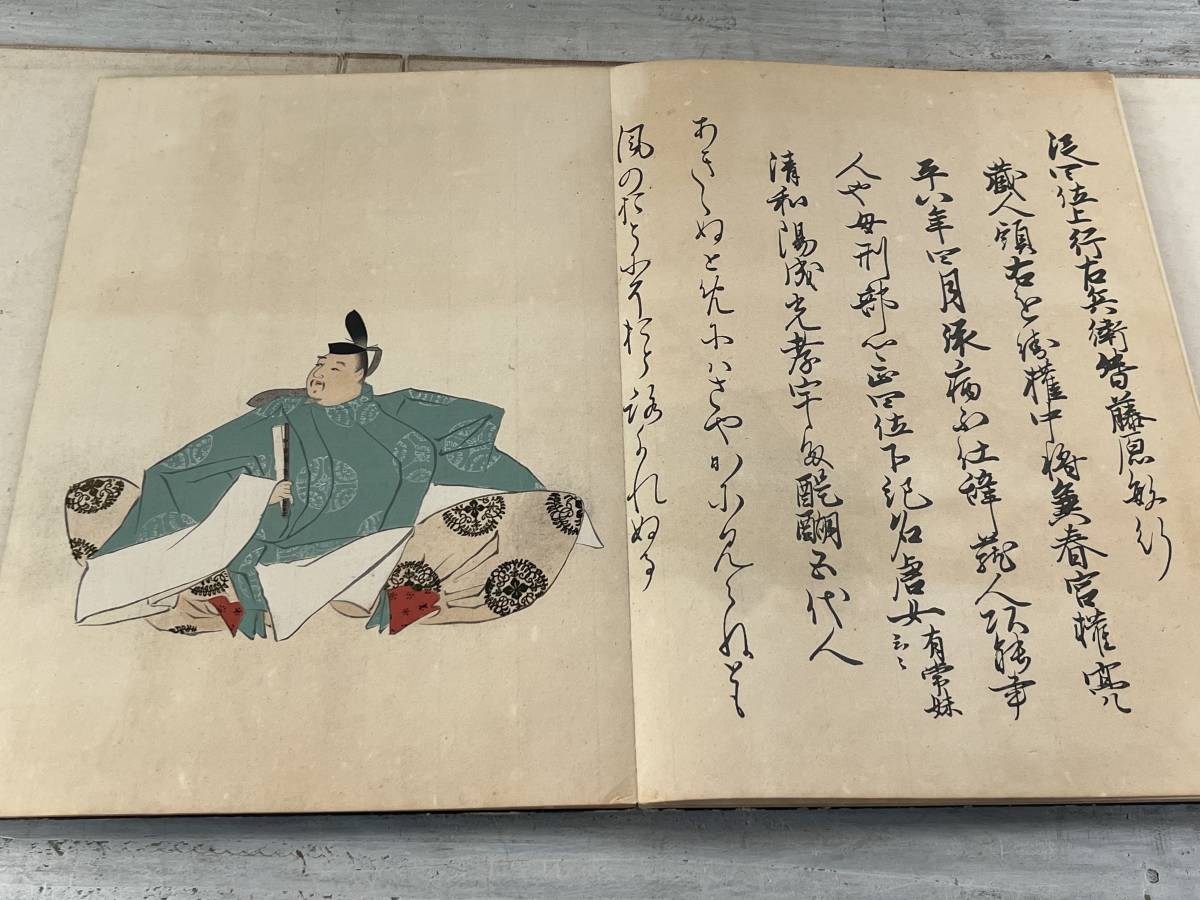 従四位上行右兵衛督藤原敏行
蔵人頭右近衛権中将兼春宮権亮
平八年四月依病不仕辞蔵人頭能書
人也母刑部卿正四位下紀名虎女有常妹云々
清和陽成光孝宇多醍醐五代人
あききぬとめにはさやかにみえねとも
風のおとにそおとろかれぬる